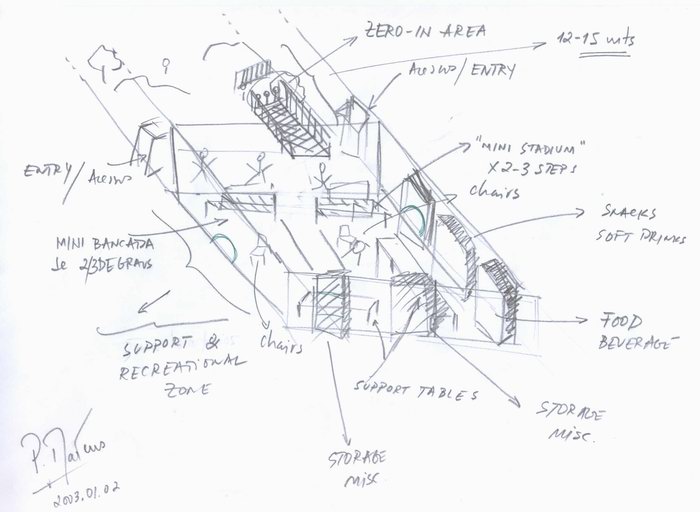 ZERO-IN AREA
12-15 mts
ACESSO/ENTRY
"MINI STADIUM"
X 2-3 STEPS
ENTRY/
ACESSO
chairs
SNACKS
SOFT DRINKS
MINI BANCADA
de 2/3 DEGRAUS
FOOD
BEVERAGE
SUPPORT &
RECREATIONAL
ZONE
chairs
SUPPORT TABLES
STORAGE
MISC.
STORAGE
MISC
P. Mateus
2003.01.02